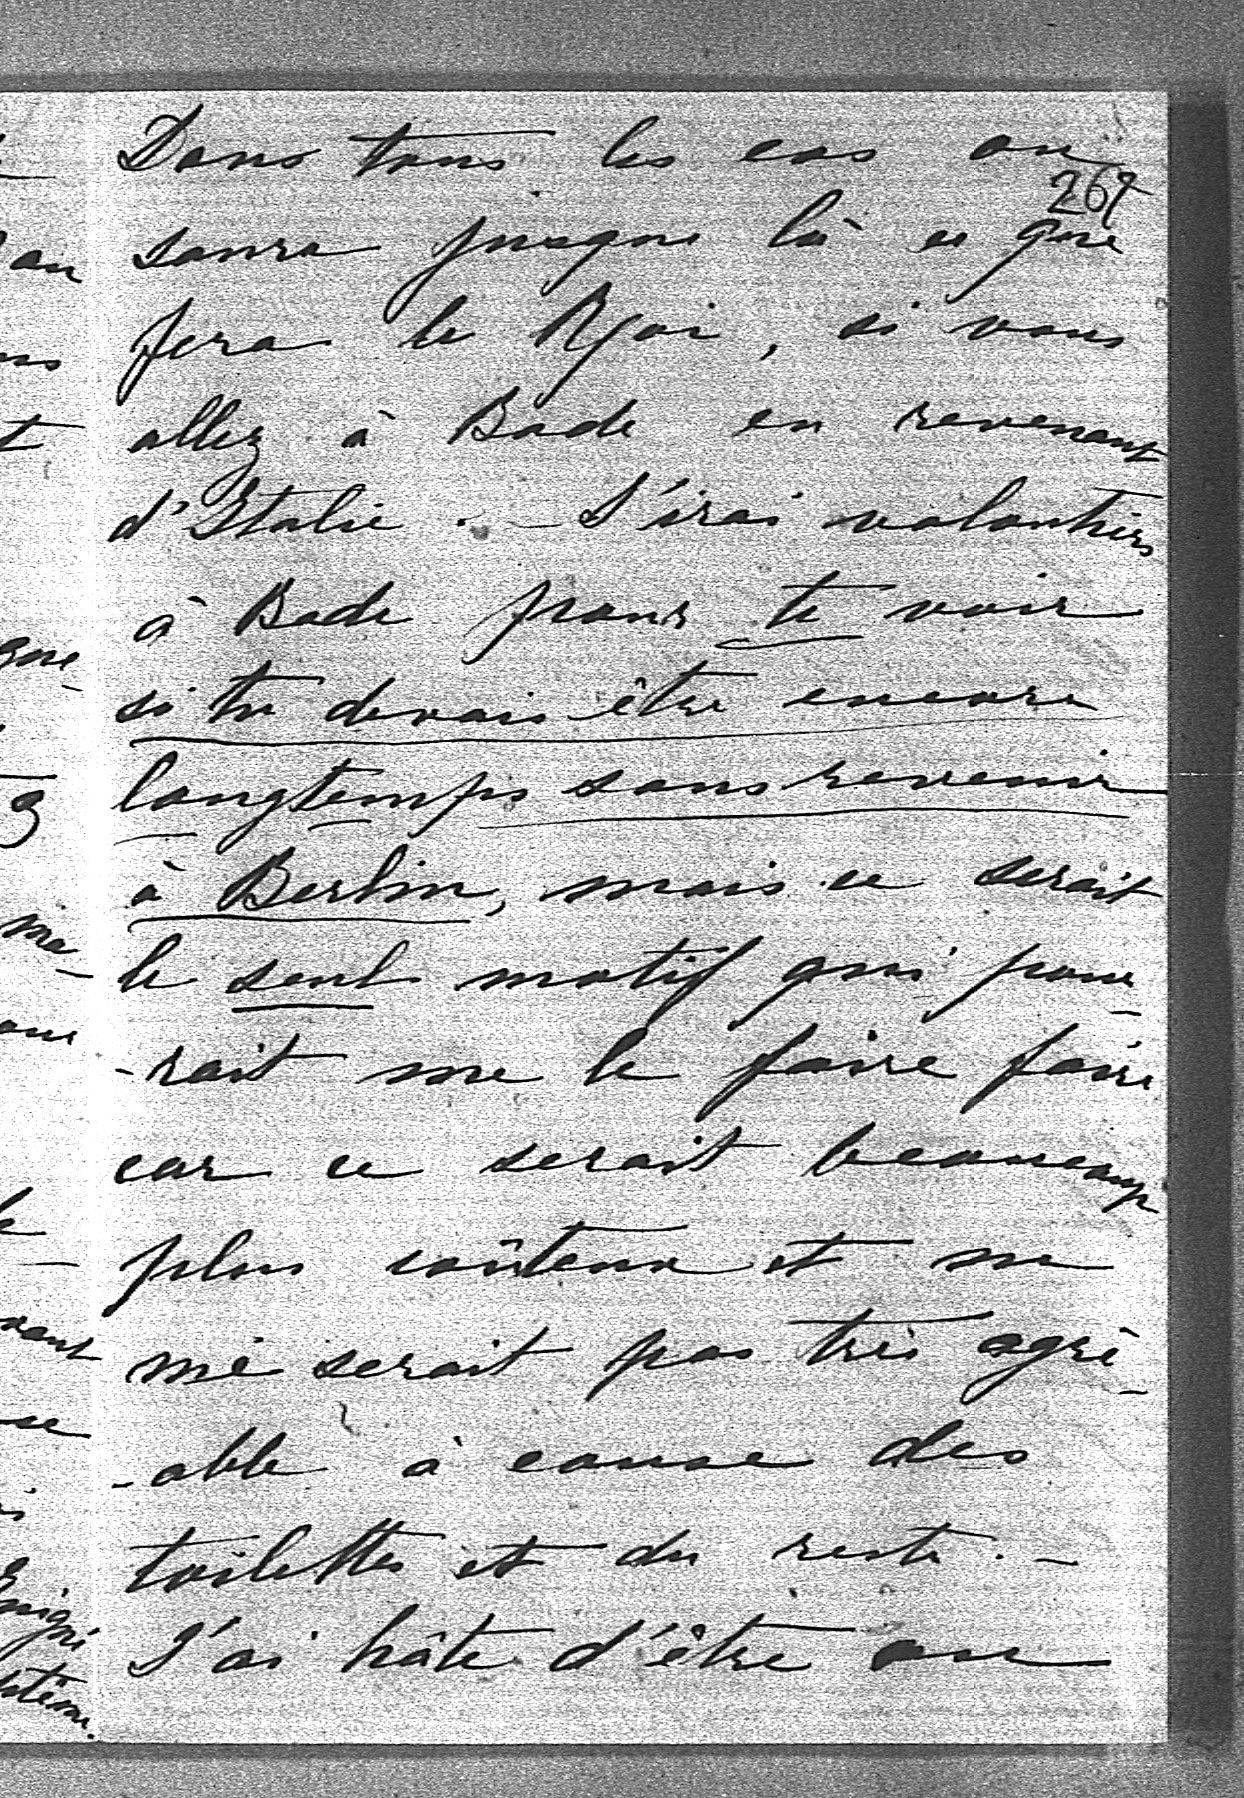 Dans tous les cas on
269
saura jusque là ce que
fera le Roi, si vous
allez à Bade en revenant
d'Italie. — J'irai volontiers
à Bade pour te voir
si tu devais être encore
longtemps sans revenir
à Berlin, mais ce serait
le seul motif qui pour-
-rait me le faire faire
car ce serait beaucoup
plus coûteux et ne
me serait pas très agré-
-able à cause des
toilettes et du reste. —
J'ai hâte d'être au